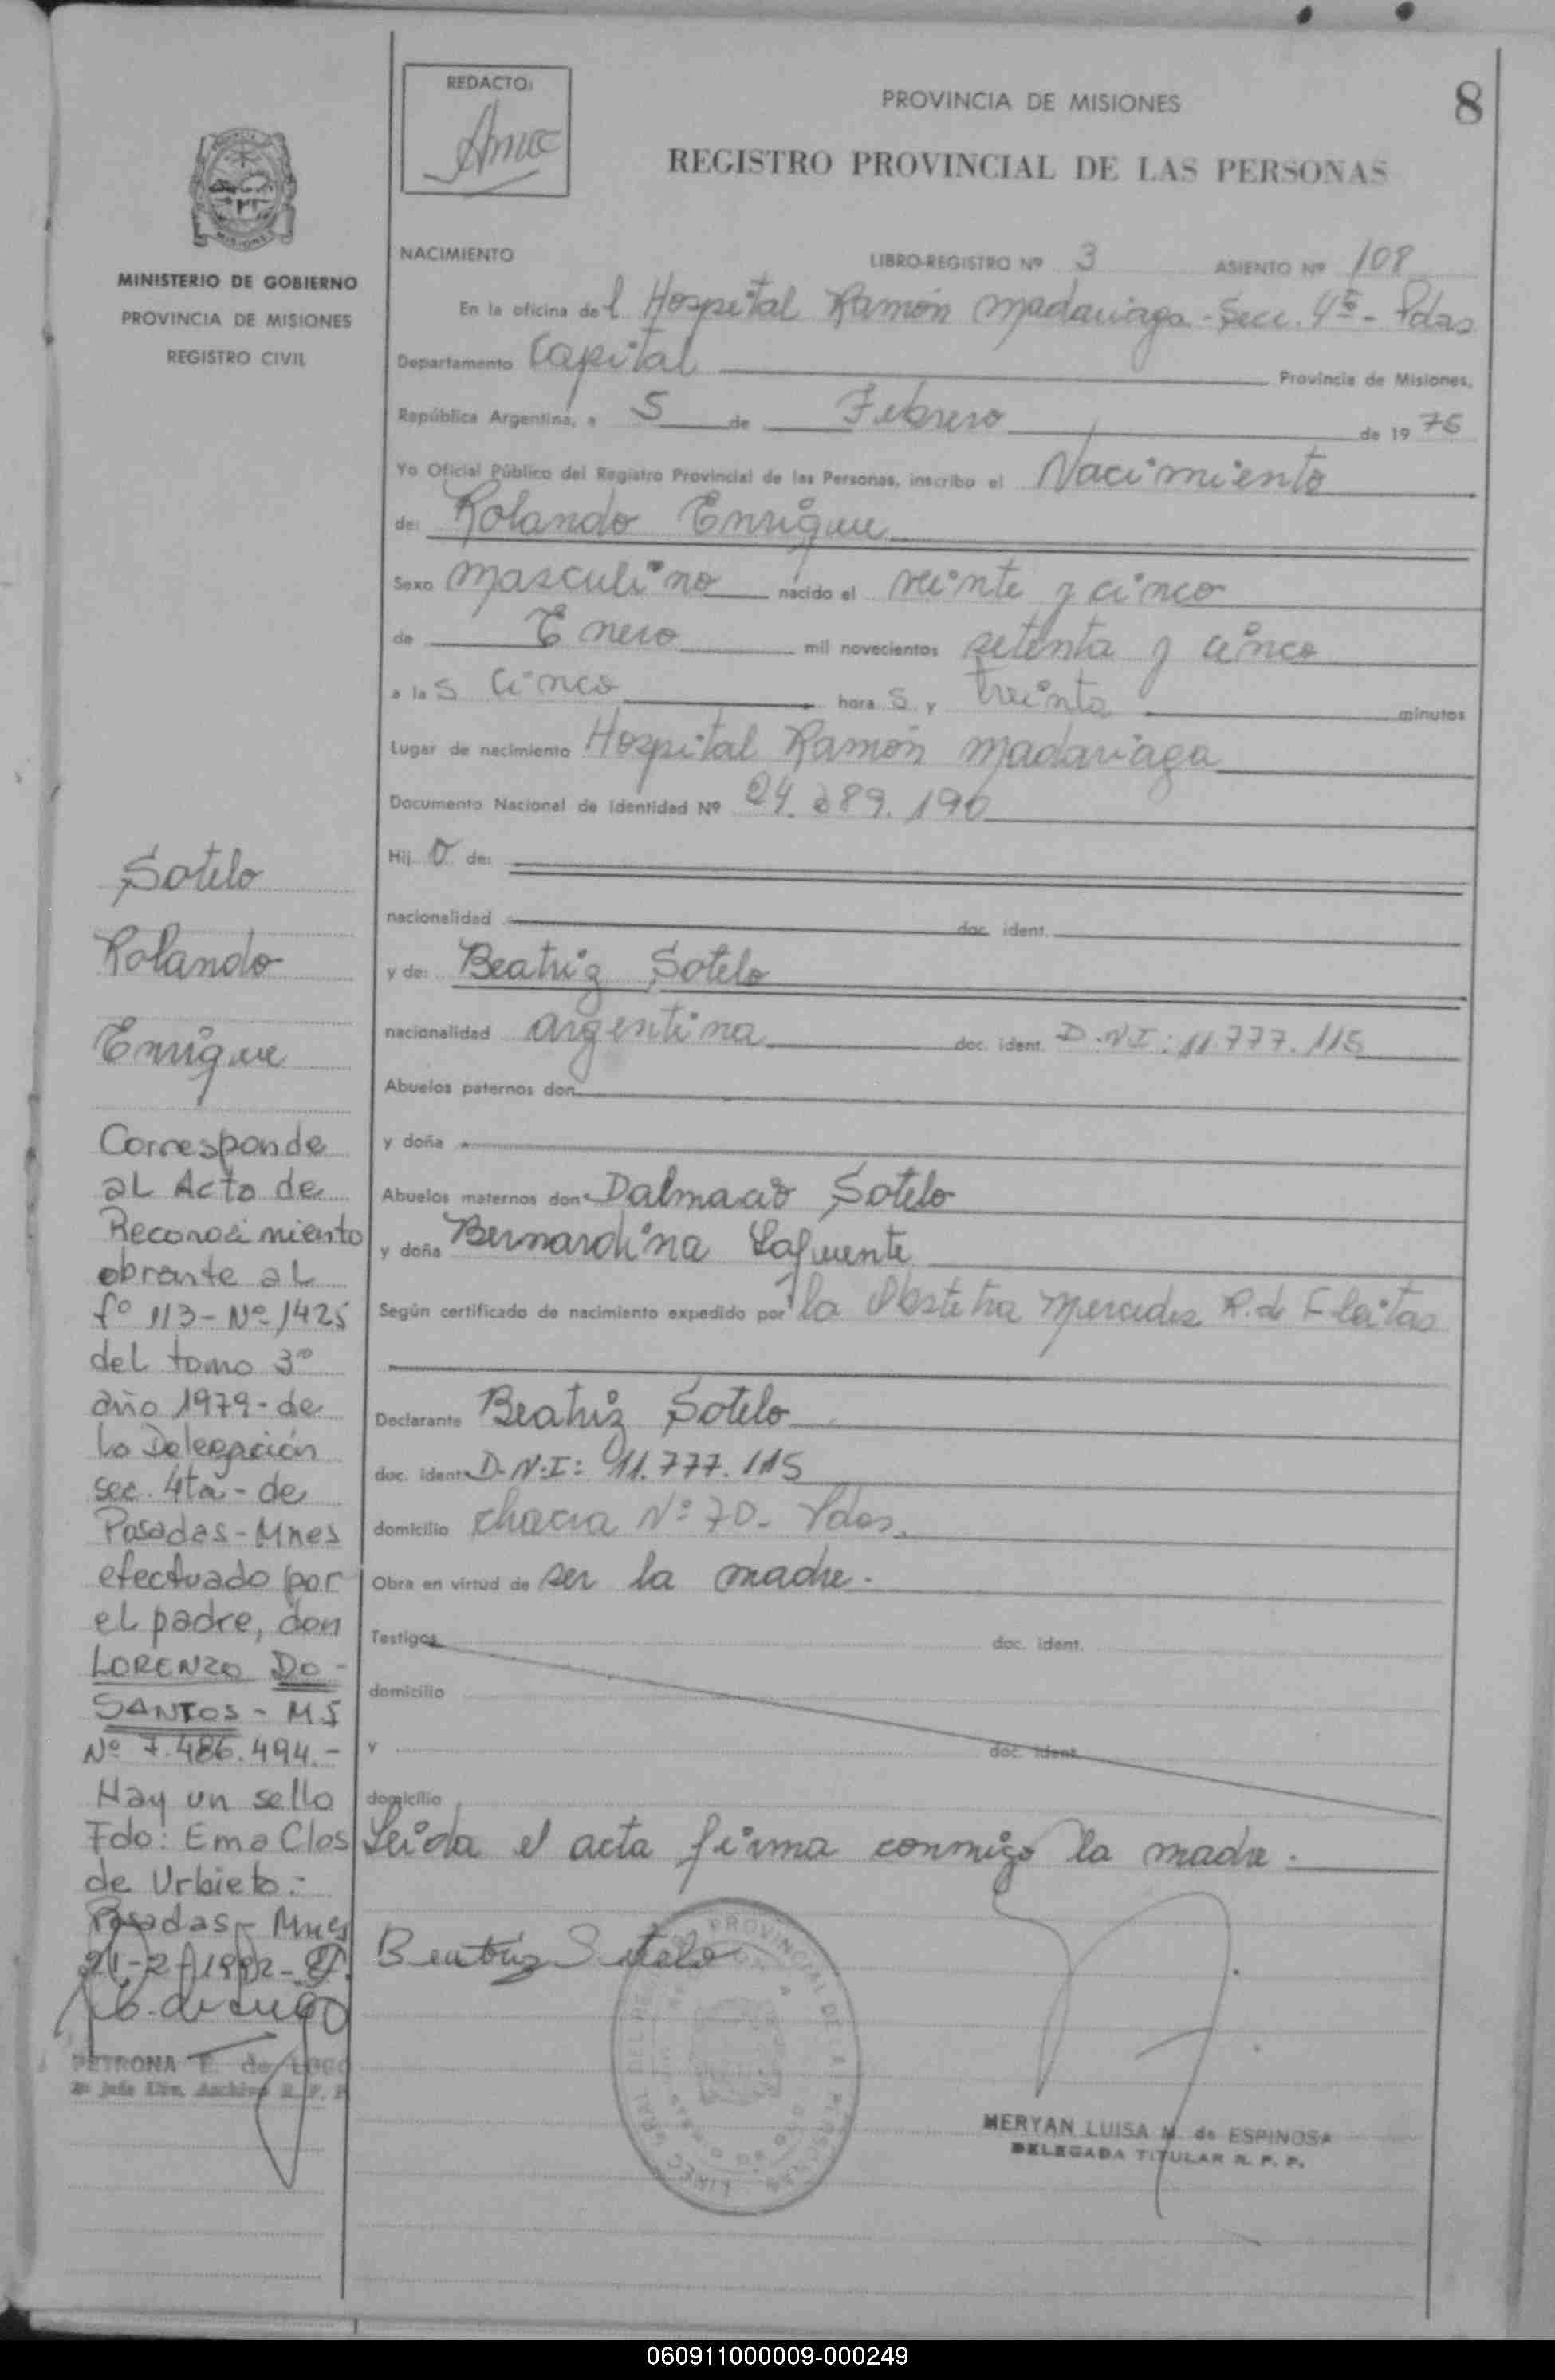 REDACTO:
PROVINCIA DE MISIONES
8
REGISTRO PROVINCIAL DE LAS PERSONAS
MINISTERIO DE GOBIERNO
PROVINCIA DE MISIONES
REGISTRO CIVIL
NACIMIENTO LIBRO-REGISTRO Nº 3 ASIENTO Nº 108
En la oficina del Hospital Ramón Madariaga - Secc. 4ta - Pdas
Departamento Capital Provincia de Misiones,
República Argentina, a 5 de Febrero de 1975
Yo Oficial Público del Registro Provincial de las Personas, inscribo el Nacimiento
de: Rolando Enrique
Sexo masculino nacido el veinte y cinco
de Enero mil novecientos setenta y cinco
a las Cinco horas y treinta minutos
Lugar de nacimiento Hospital Ramón Madariaga
Documento Nacional de Identidad Nº 24.289.190
Hijo de:
nacionalidad doc. ident.
y de: Beatriz Sotelo
nacionalidad argentina doc. ident. D.N.I: 11.777.115
Abuelos paternos don
y doña
Abuelos maternos don Dalmacio Sotelo
y doña Bernardina Lafuente
Según certificado de nacimiento expedido por la Obstetra Mercedes R. de Fleitas
Declarante Beatriz Sotelo
doc. ident. D.N.I: 11.777.115
domicilio chacra Nº 70 - Pdas.
Obra en virtud de ser la madre.
Testigos doc. ident.
domicilio
y doc. ident.
domicilio
Leída el acta firma conmigo la madre.
Beatriz Sotelo
MERYAN LUISA M. de ESPINOSA
DELEGADA TITULAR R. P. P.
Sotelo
Rolando
Enrique
Corresponde
al Acta de
Reconocimiento
obrante al
fº 113 - Nº 1425
del tomo 3º
año 1979 - de
la Delegación
sec. 4ta - de
Posadas - Mnes
efectuado por
el padre, don
LORENZO DO -
SANTOS - M I
Nº 7.486.494.-
Hay un sello
Fdo: Ema Clos
de Urbieta.-
Posadas - Mnes
21-2-1982-
PETRONA E. de LUGO
060911000009-000249